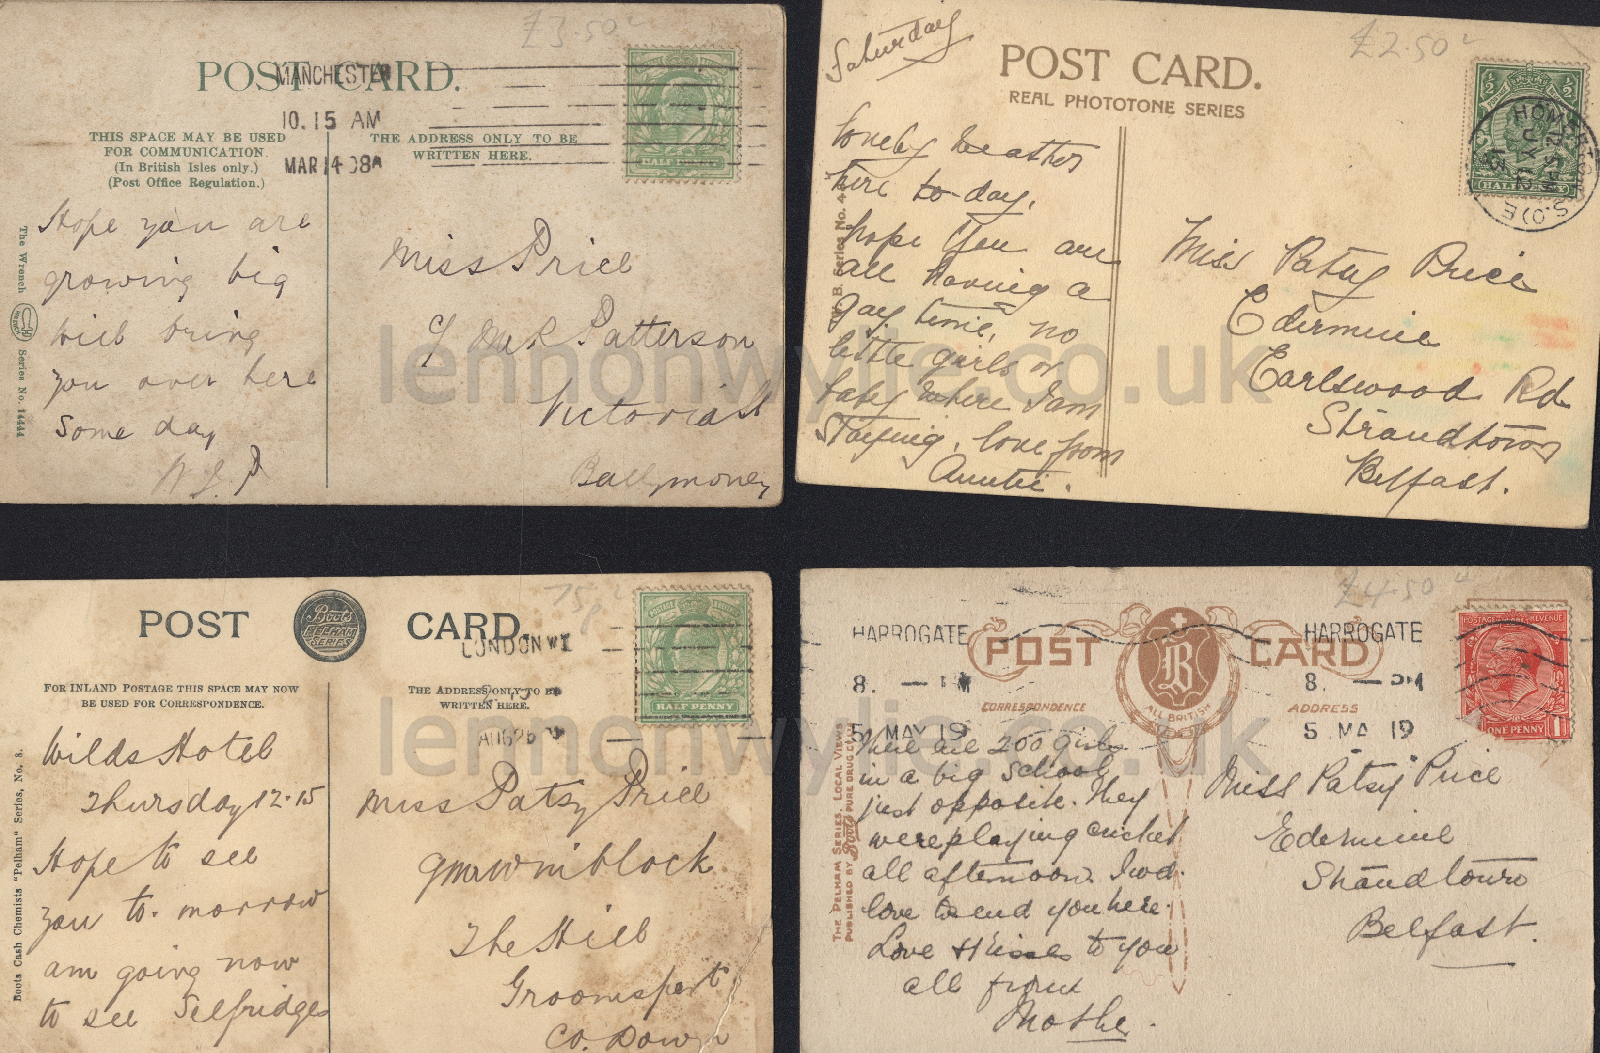 £3.50
POST CARD.
MANCHESTER
10.15 AM
MAR 14 08
THIS SPACE MAY BE USED
FOR COMMUNICATION.
(In British Isles only.)
(Post Office Regulation.)
THE ADDRESS ONLY TO BE
WRITTEN HERE.
HALF PENNY
The Wrench Series No. 14444
Hope you are
growing big
will bring
you over here
some day
Miss Price
Patterson
Victoria St
Ballymoney
Saturday
£2.50
POST CARD.
REAL PHOTOTONE SERIES
½ ½
HALF PENNY
B. Series No. 4
lovely weather
here to-day,
hope you are
all having a
gay time, no
little girls or
baby where I am
staying, love from
Auntie.
Miss Patsy Price
Edermine
Earlswood Rd
Strandtown
Belfast.
lennonwylie.co.uk
75p
POST CARD.
Boots
PELHAM
SERIES
LONDON W1
AUG 26
FOR INLAND POSTAGE THIS SPACE MAY NOW
BE USED FOR CORRESPONDENCE.
THE ADDRESS ONLY TO BE
WRITTEN HERE.
POSTAGE
HALF PENNY
Boots Cash Chemists "Pelham" Series, No. 8.
Wilds Hotel
Thursday 12.15
Hope to see
you to-morrow
am going now
to see Selfridges
Miss Patsy Price
The Hill
Groomsport
Co. Down
£4.50
HARROGATE HARROGATE
POST CARD
B
ALL BRITISH
8. — PM 8. — PM
CORRESPONDENCE ADDRESS
5 MAY 19 5 MA 19
POSTAGE REVENUE
ONE PENNY 1
THE PELHAM SERIES. LOCAL VIEWS
PUBLISHED BY Boots PURE DRUG CO LTD
There are 200 girls
in a big school
just opposite. They
were playing cricket
all afternoon. I wd.
love to send you here.
Love & kisses to you
all from
Mother.
Miss Patsy Price
Edermine
Strandtown
Belfast.
lennonwylie.co.uk